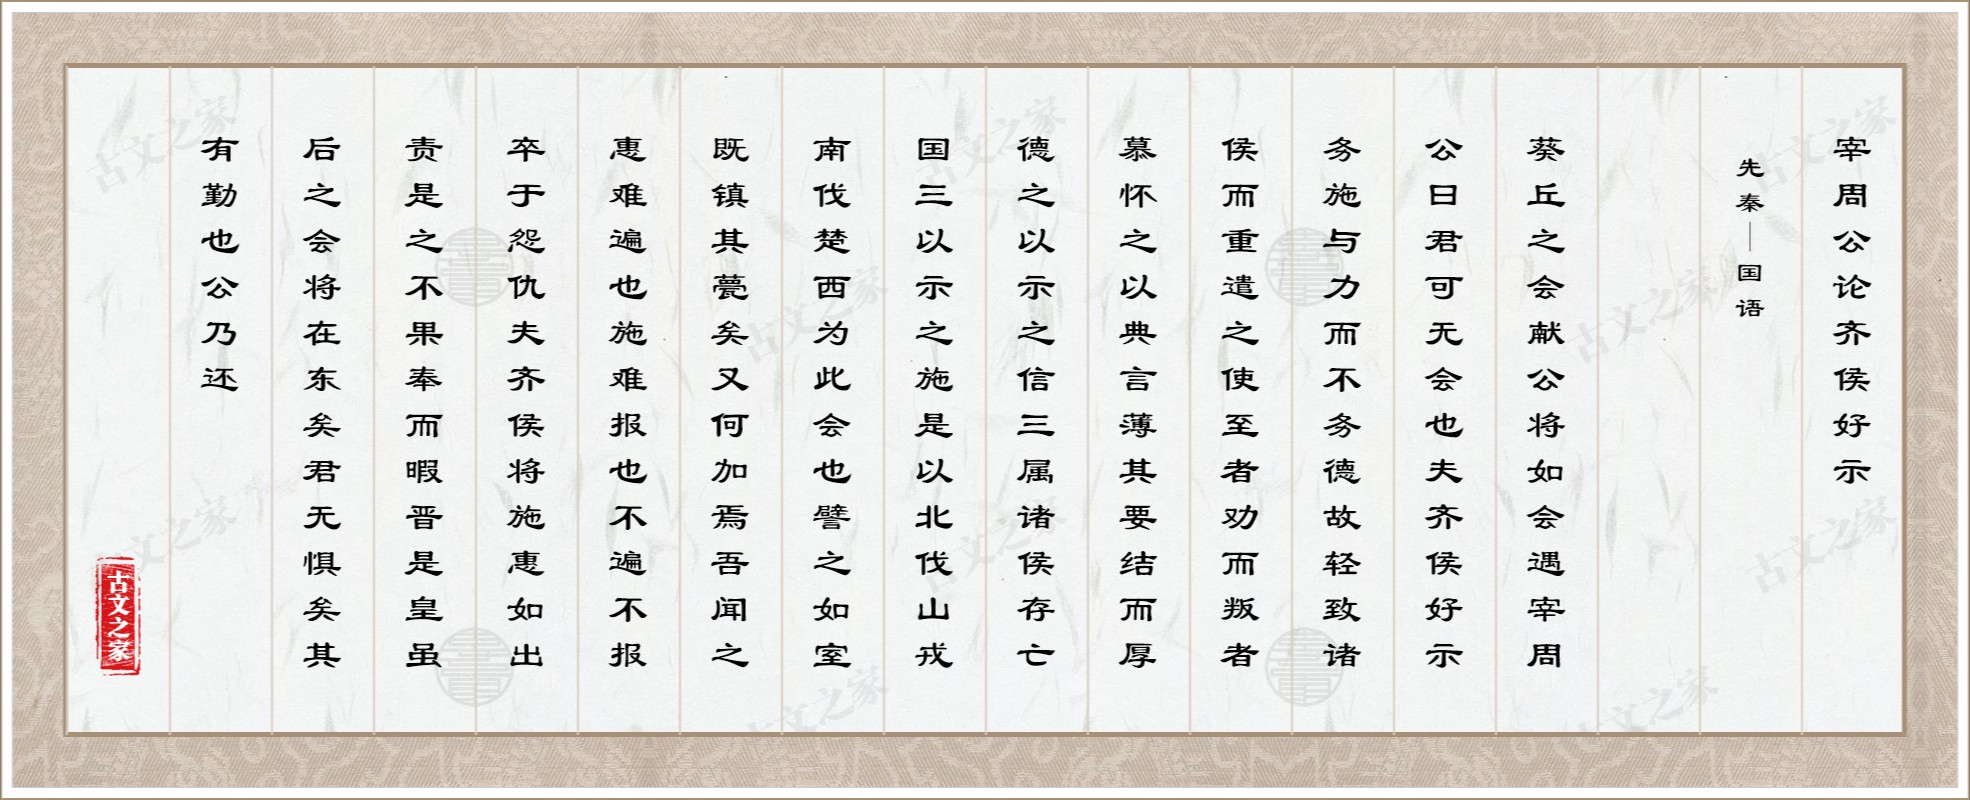 宰周公论齐侯好示
先秦—国语
葵丘之会献公将如会遇宰周
公曰君可无会也夫齐侯好示
务施与力而不务德故轻致诸
侯而重遣之使至者劝而叛者
慕怀之以典言薄其要结而厚
德之以示之信三属诸侯存亡
国三以示之施是以北伐山戎
南伐楚西为此会也譬之如室
既镇其甍矣又何加焉吾闻之
惠难遍也施难报也不遍不报
卒于怨仇夫齐侯将施惠如出
责是之不果奉而暇晋是皇虽
后之会将在东矣君无惧矣其
有勤也公乃还
古文之家